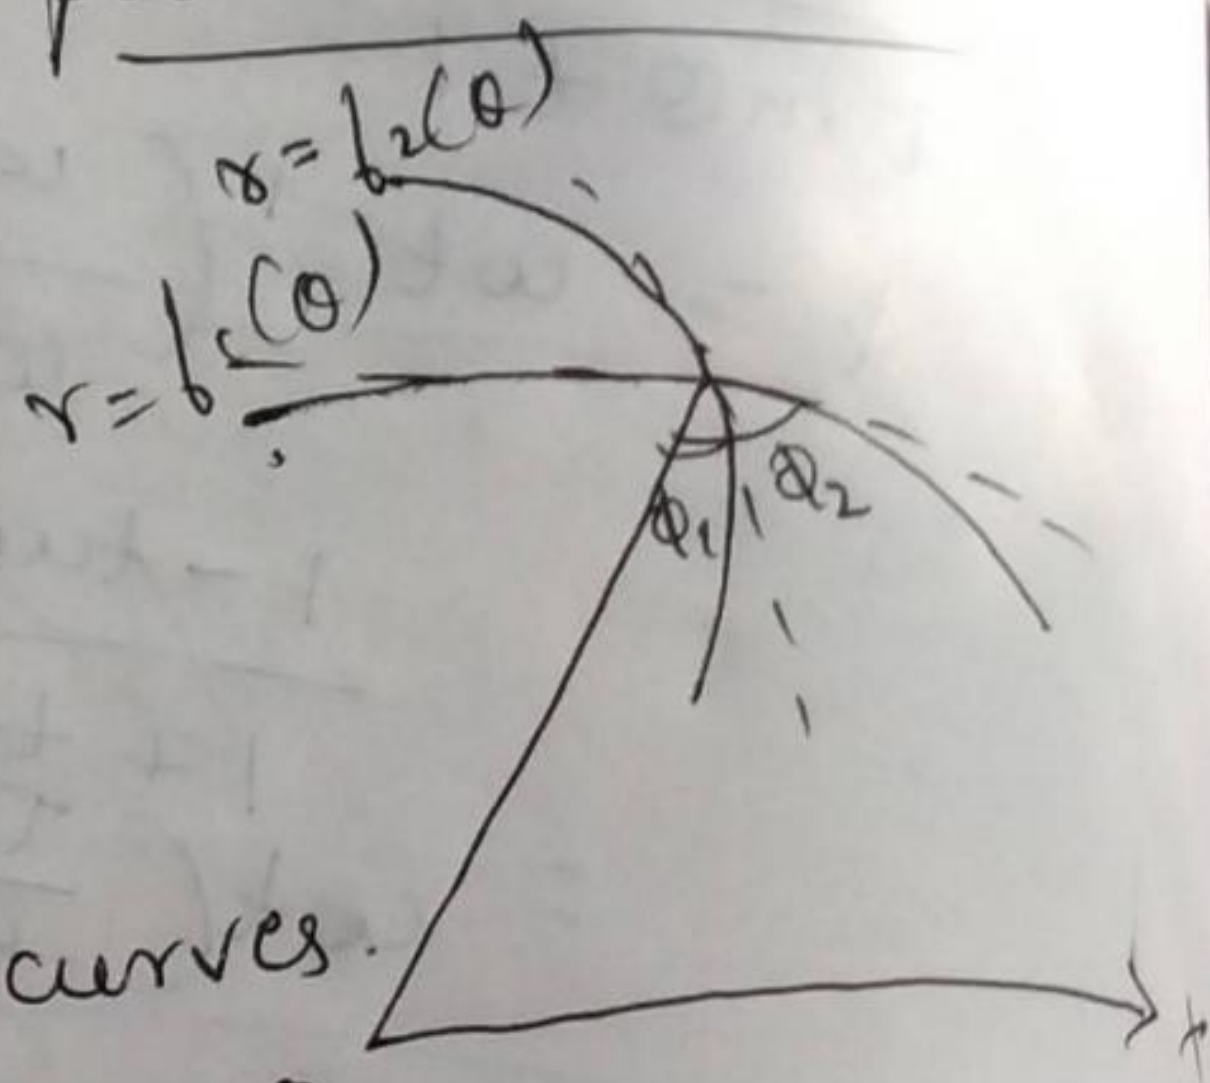 r = f₂(θ)
r = f₁(θ)
Φ₁
Φ₂
curves.